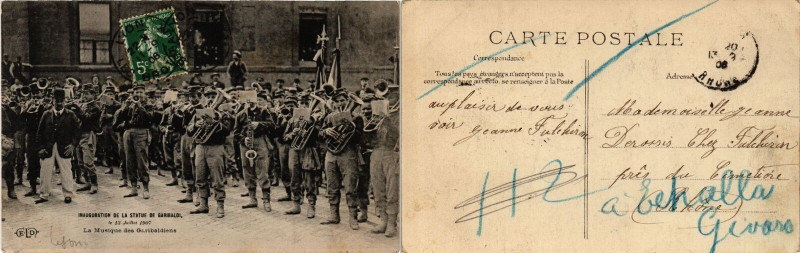 INAUGURATION DE LA STATUE DE GARIBALDI,
le 13 Juillet 1907
La Musique des Garibaldiens
ELD
Lyon
5c
CARTE POSTALE
Correspondance
Tous les pays étrangers n'acceptent pas la
correspondance au recto, se renseigner à la Poste
Adresse
RHONE
au plaisir de vous
voir
Jeanne Fulchiron
Mademoiselle Jeanne
Chez Fulchiron
près du Cimetière
112
à Echalla
Rhône
Givors